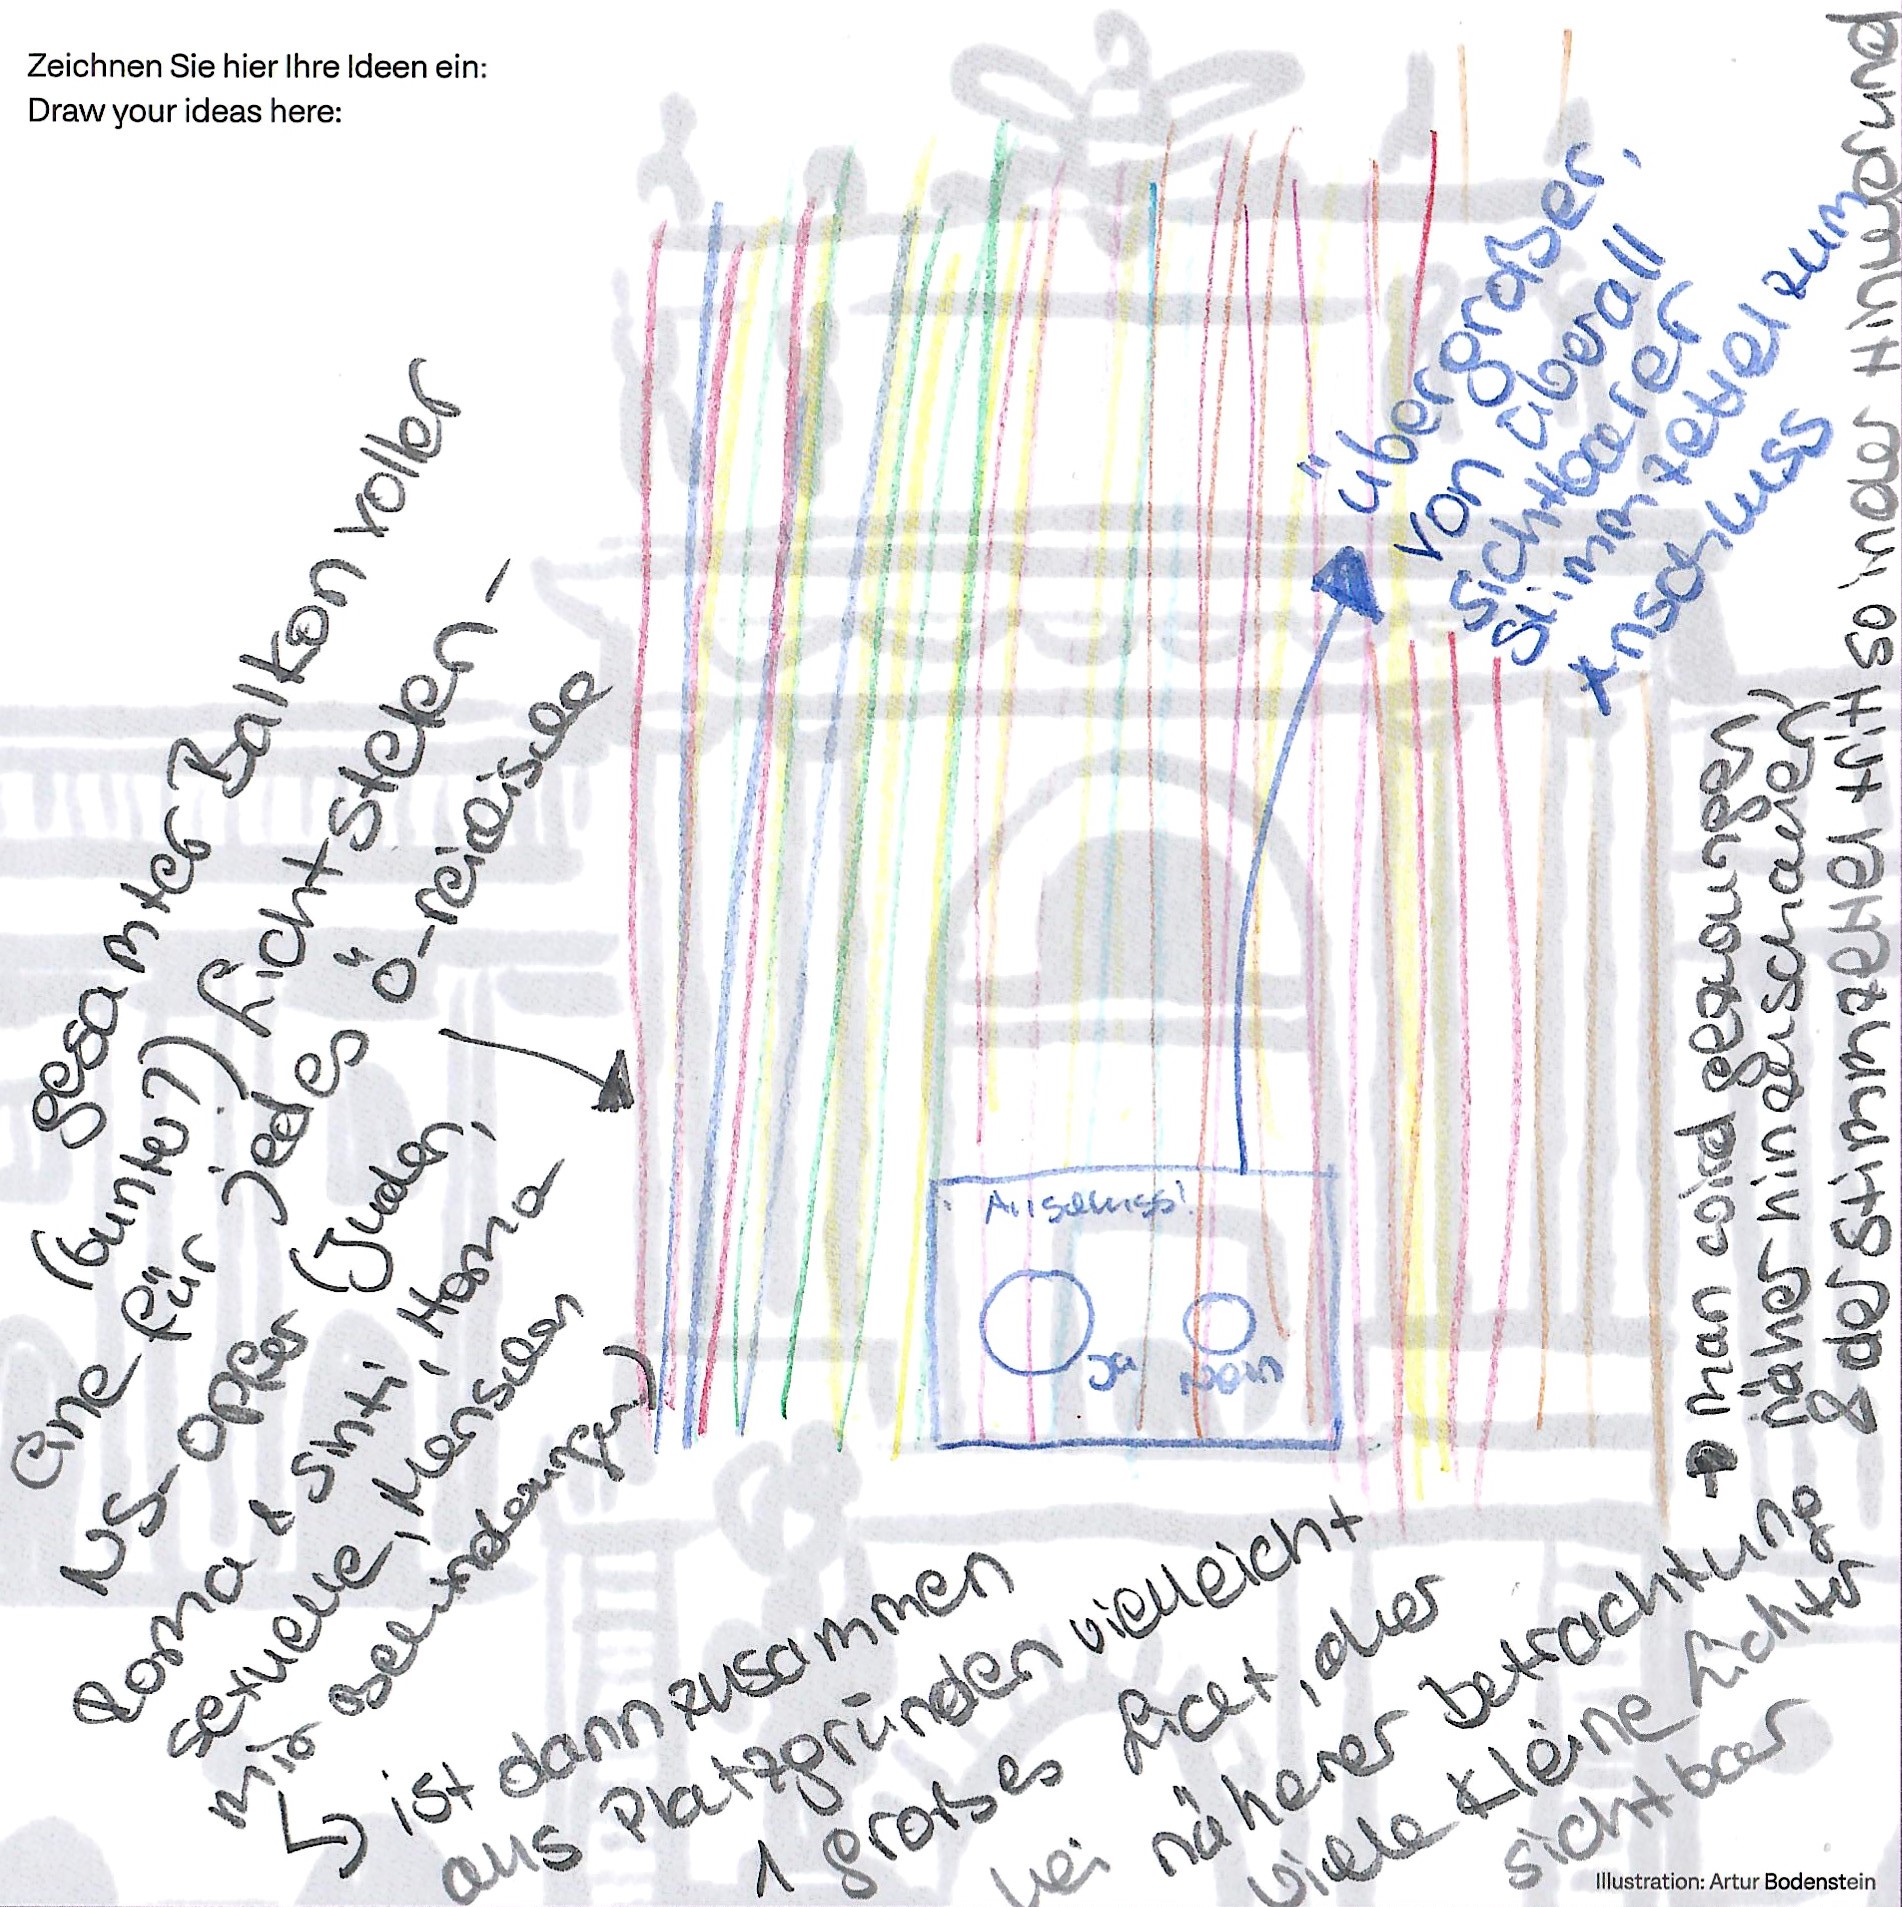 Zeichnen Sie hier Ihre Ideen ein:
Draw your ideas here:
gesamter Balkon voller
(bunter?) Lichtstelen -
eine für jedes ö-reichische
NS-Opfer (Juden,
Roma & Sinti, Homo
sexuelle, Menschen
mit Behinderungen)
↳ ist dann zusammen
aus Platzgründen vielleicht
1 großes Licht, aber
bei näherer Betrachtung
viele kleine Lichter
sichtbar
übergroßer,
von überall
sichtbarer
Stimmzettel zum
Anschluss
Anschluss!
Ja
Nein
→ man wird gezwungen
näher hinzuschauen
& der Stimmzettel tritt so in den Hintergrund
Illustration: Artur Bodenstein